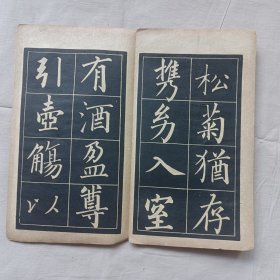 松菊猶存
携幼入室
有酒盈尊
引壺觴以